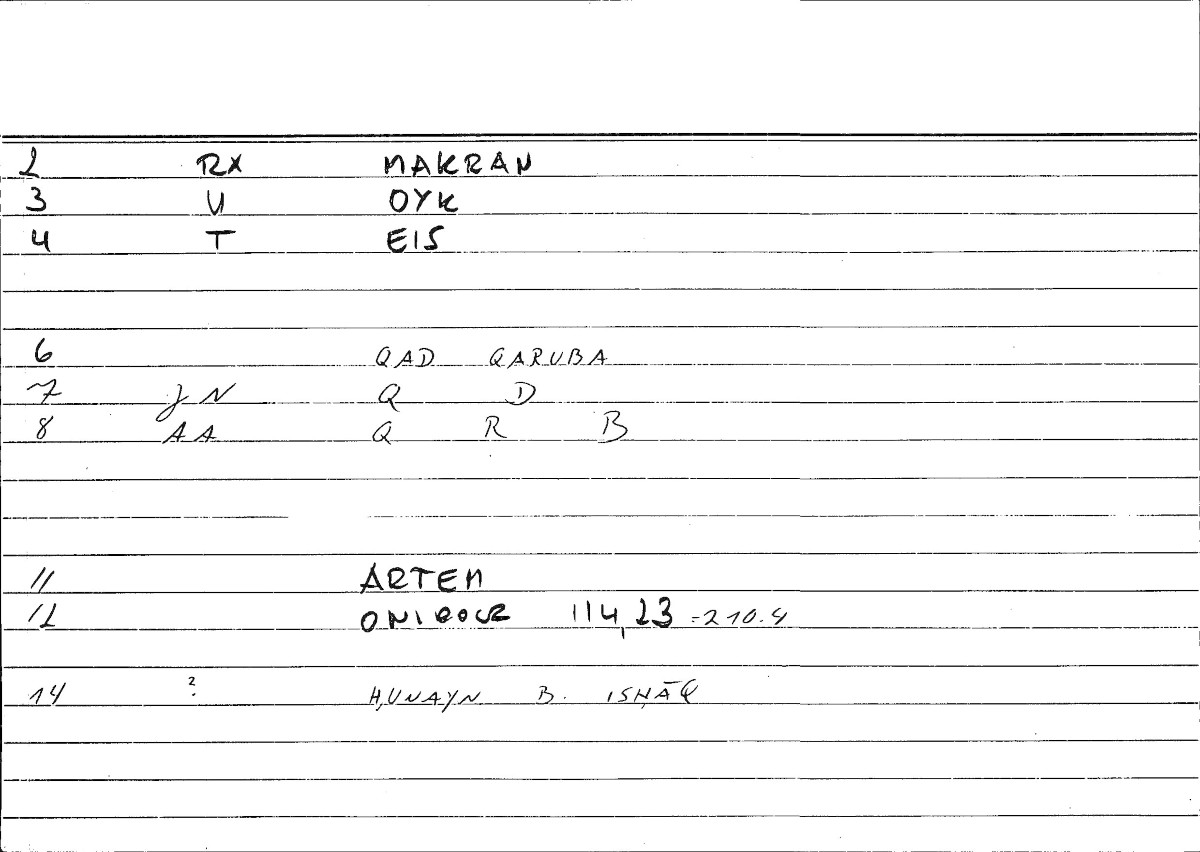 2 RX MAKRAN
3 U OYK
4 T EIS
6 QAD QARUBA
7 JN Q D
8 AA Q R B
11 ARTEM
12 ONIROCR 114,23 =210.4
14 ? ḤUNAYN B. ISḤĀQ